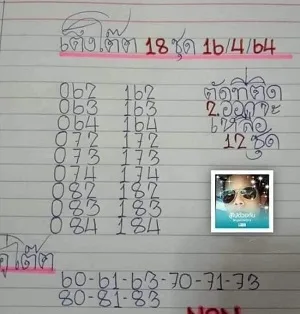 เต็งโต๊ด 18 ชุด 16/4/64
062 162
063 163
064 164
072 172
073 173
074 174
082 182
083 183
084 184
ตัดที่ติด
2 ออกจะ
เหลือ
12 ชุด
60-61-63-70-71-73
80-81-83